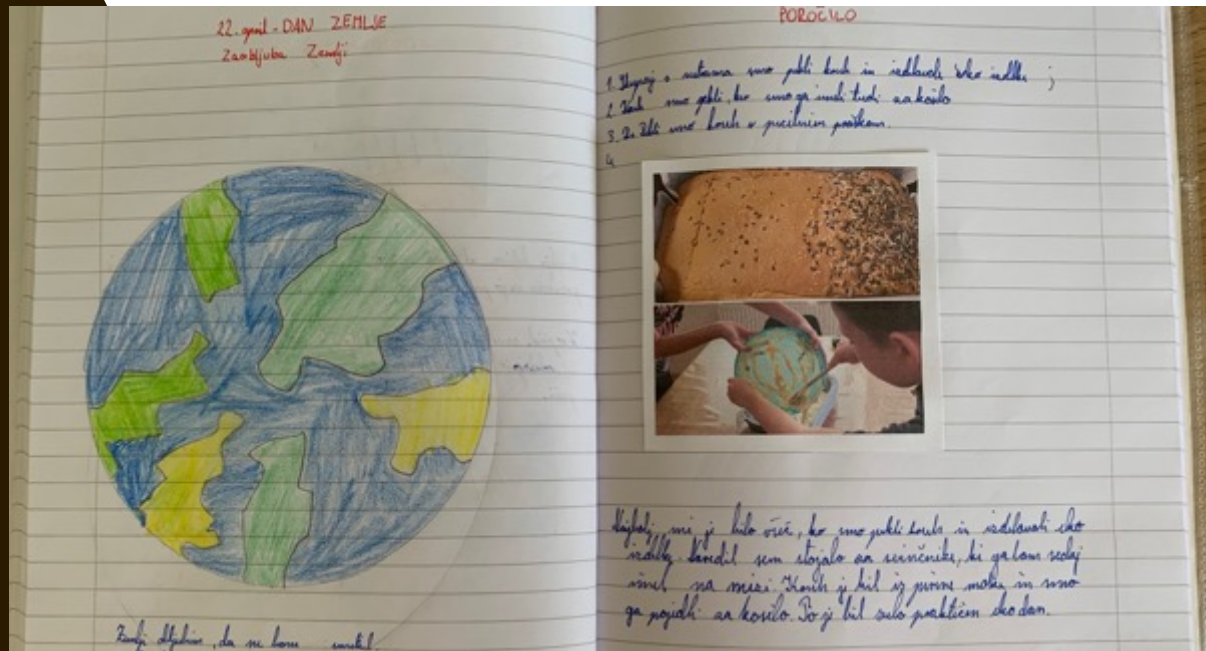 22. april - DAN ZEMLJE
Zaobljuba Zemlji
Zemlji obljubim, da ne bom smetil.
POROČILO
1. Skupaj z mentorjema smo pekli kruh in izdelovali eko izdelke
2. Kruh smo pekli, ko smo ga imeli tudi za kosilo
3. smo kruh s pecilnim praškom.
4
Najbolj mi je bilo všeč, ko smo pekli kruh in izdelovali eko
izdelke. Naredil sem stojalo za svinčnike, ki ga bom sedaj
imel na mizi. Kruh je bil iz pirine moke in smo
ga pojedli za kosilo. To je bil zelo praktičen eko dan.